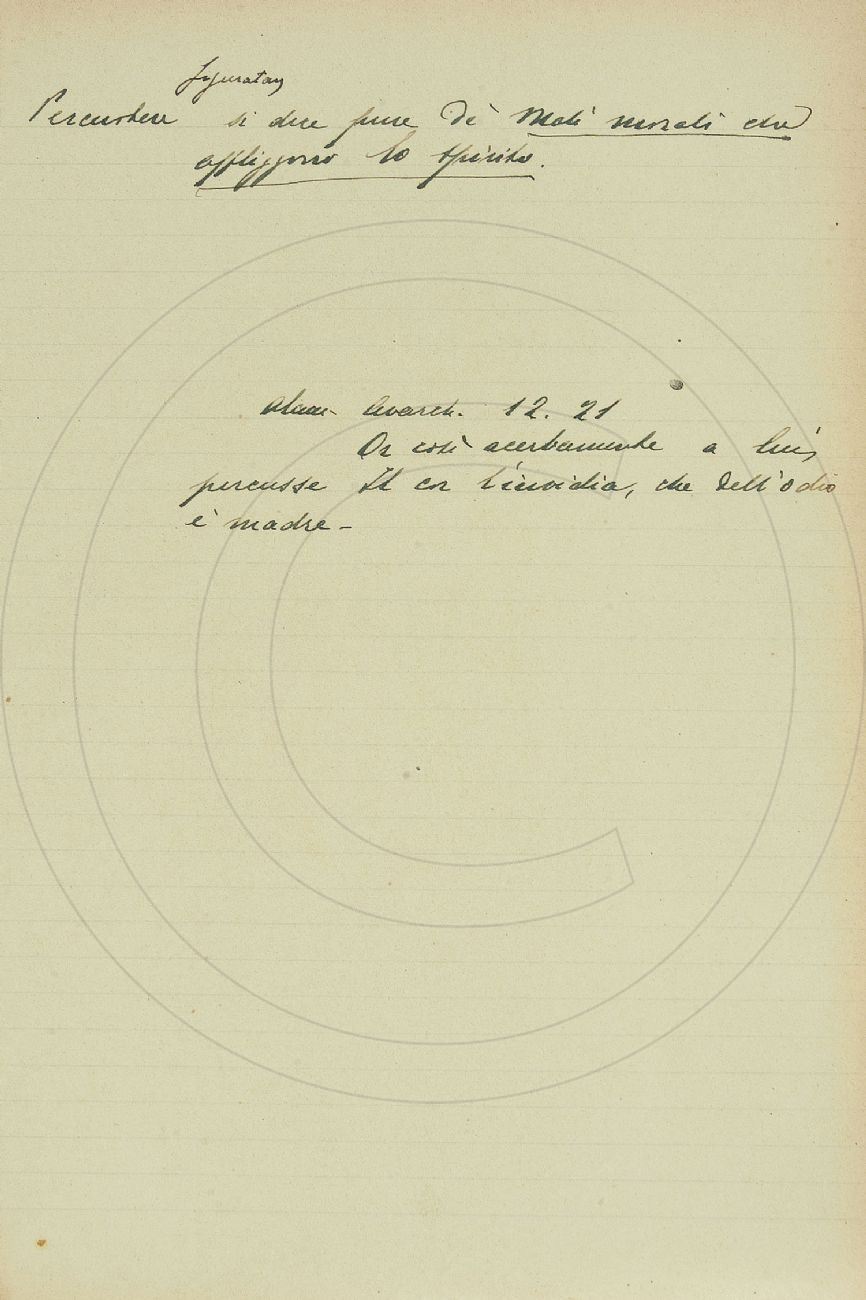 figuratam
Percuotere si dice pure de' Mali morali che
affliggono lo spirito.
Alam. Avarch. 12. 21
Or così acerbamente a lui
percusse Il cor l'invidia, che dell'odio
è madre -